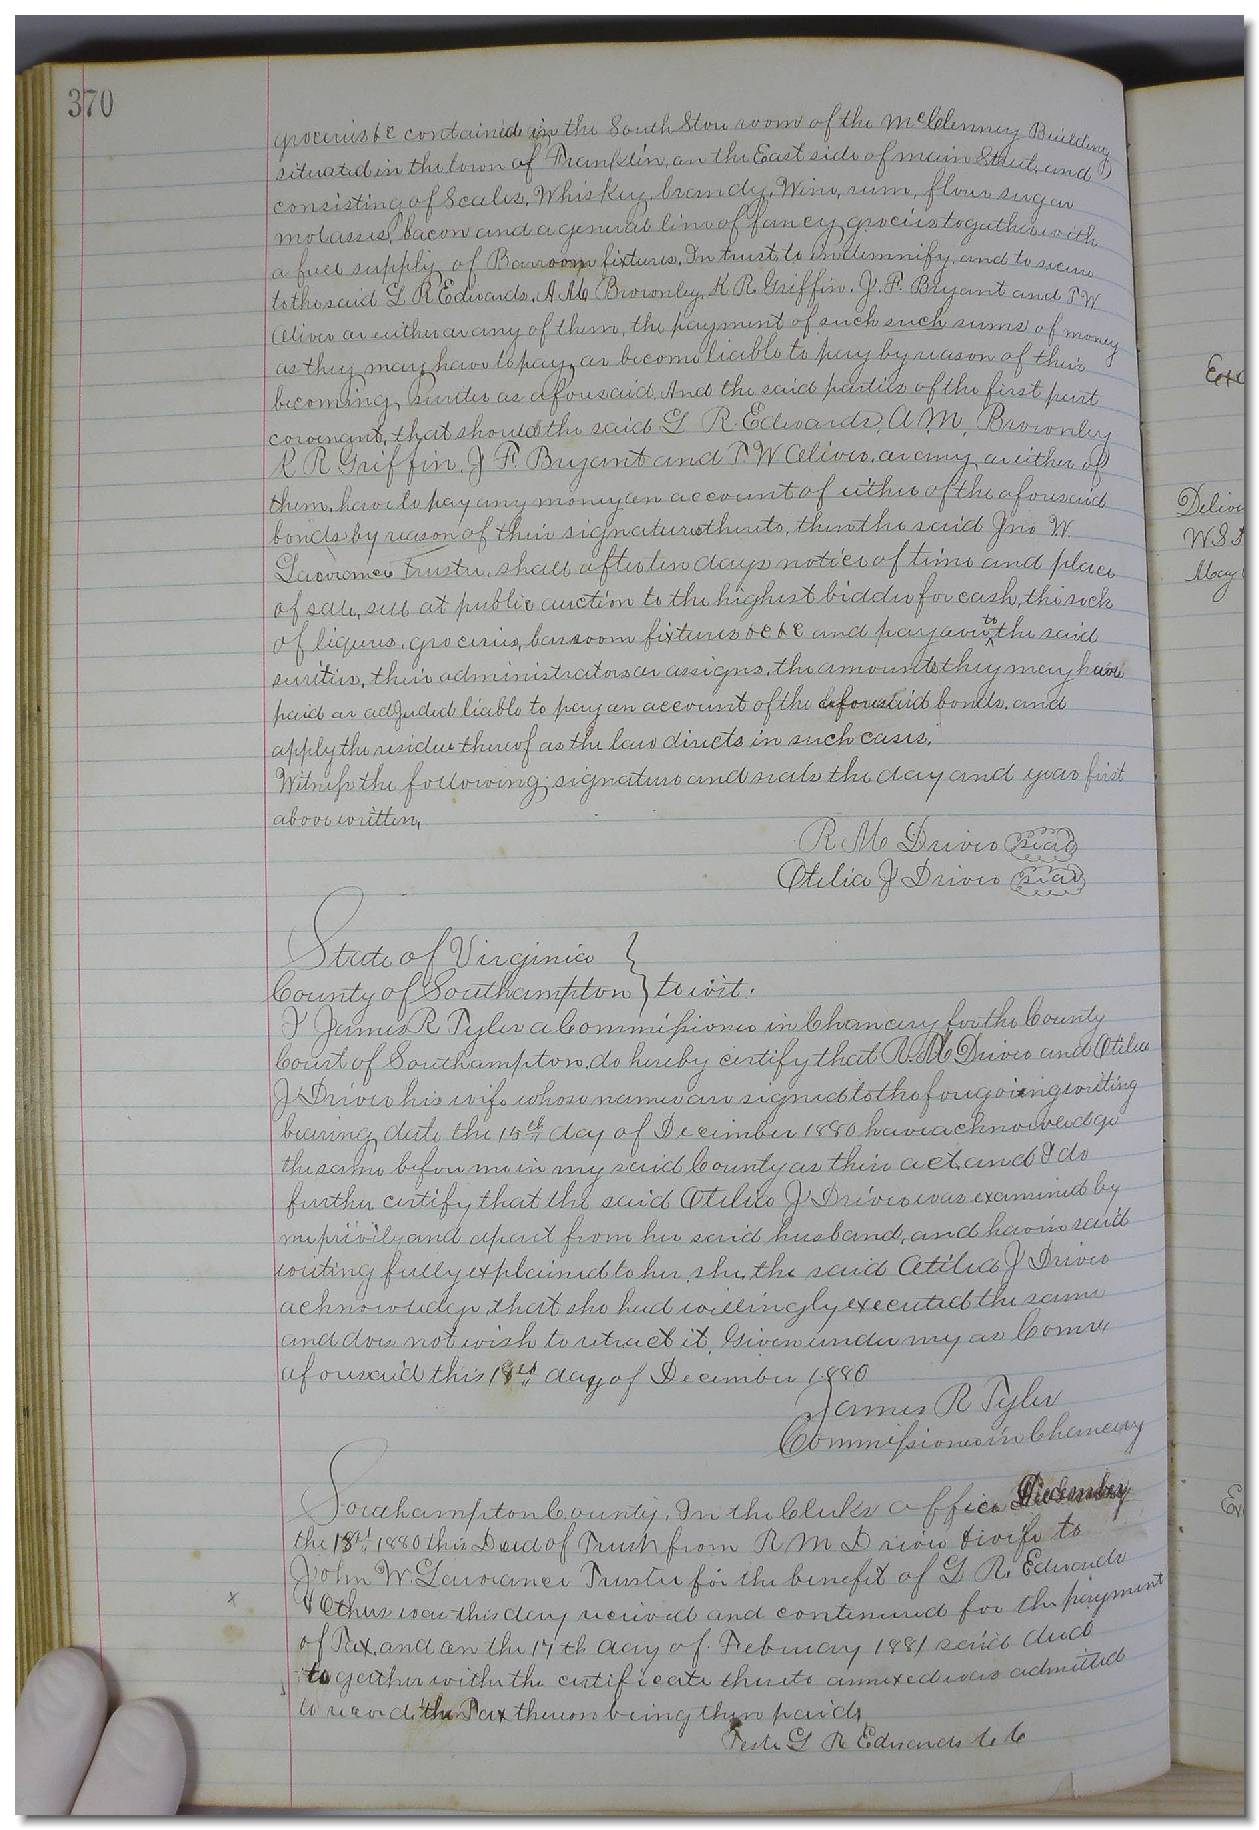 370
groceries &c contained in the South Store room of the McClenney Building
situated in the town of Franklin, on the East side of main Street, and
consisting of Scales, Whiskey, brandy, Wine, rum, flour sugar
molasses, bacon and a general line of fancy grocies together with
a full supply of Barroom fixtures, In trust to indemnify and to secure
to the said L R Edwards, A M Brownley, K R Griffin, J. F. Bryant and T W
Oliver or either or any of them, the payment of such such sums of money
as they may have to pay, or become liable to pay by reason of their
becoming sureties as aforesaid, And the said parties of the first part
covenant, that should the said L R Edwards, A. M. Brownley
K R Griffin, J F Bryant and T. W Oliver, or any or either of
them, have to pay any money on account of either of the aforesaid
bonds by reason of their signature thereto, then the said Jno W.
Lawrance Trustee, shall after ten days notice of time and place
of sale, sell at public auction to the highest bidder for cash, the sock
of liquors, groceries, barroom fixtures &c &c and pay over to the said
sureties, their administrators or assigns, the amounts they may have
paid or adjuded liable to pay on account of the aforesaid bonds, and
apply the residue thereof as the law directs in such cases.
Witness the following signature and seals the day and year first
above written,
R M Driver seal
Otelia J Driver seal
State of Virginia
County of Southampton } to wit:
I James R Tyler a Commissioner in Chancery for the County
Court of Southampton, do hereby certify that R. M Driver and Otelia
J Driver his wife whose names are signed to the foregoing writing
bearing date the 15th day of December 1880 have acknowledge
the same before me in my said County as their act, and I do
further certify that the said Otelia J Driver was examined by
me privily and apart from her said husband, and having said
writing fully explained to her, she, the said Otelia J Driver
acknowledge, that she had willingly executed the same
and does not wish to retract it, Given under my as Comr
aforesaid this 18th day of December 1880
James R Tyler
Commissioner in Chancery
Southampton County, In the Clerks office December
the 18th 1880 this Deed of Trust from R M Driver & wife to
John W Lawrance Trustee for the benefit of L R. Edwards
x & Others was this day received and continued for the payment
of Tax. and on the 17th day of February 1881 said deed
together with the certificate thereto annexed was admitted
to record, the Tax thereon being then paid,
Teste L R Edwards C C
Deliv
W.S
May